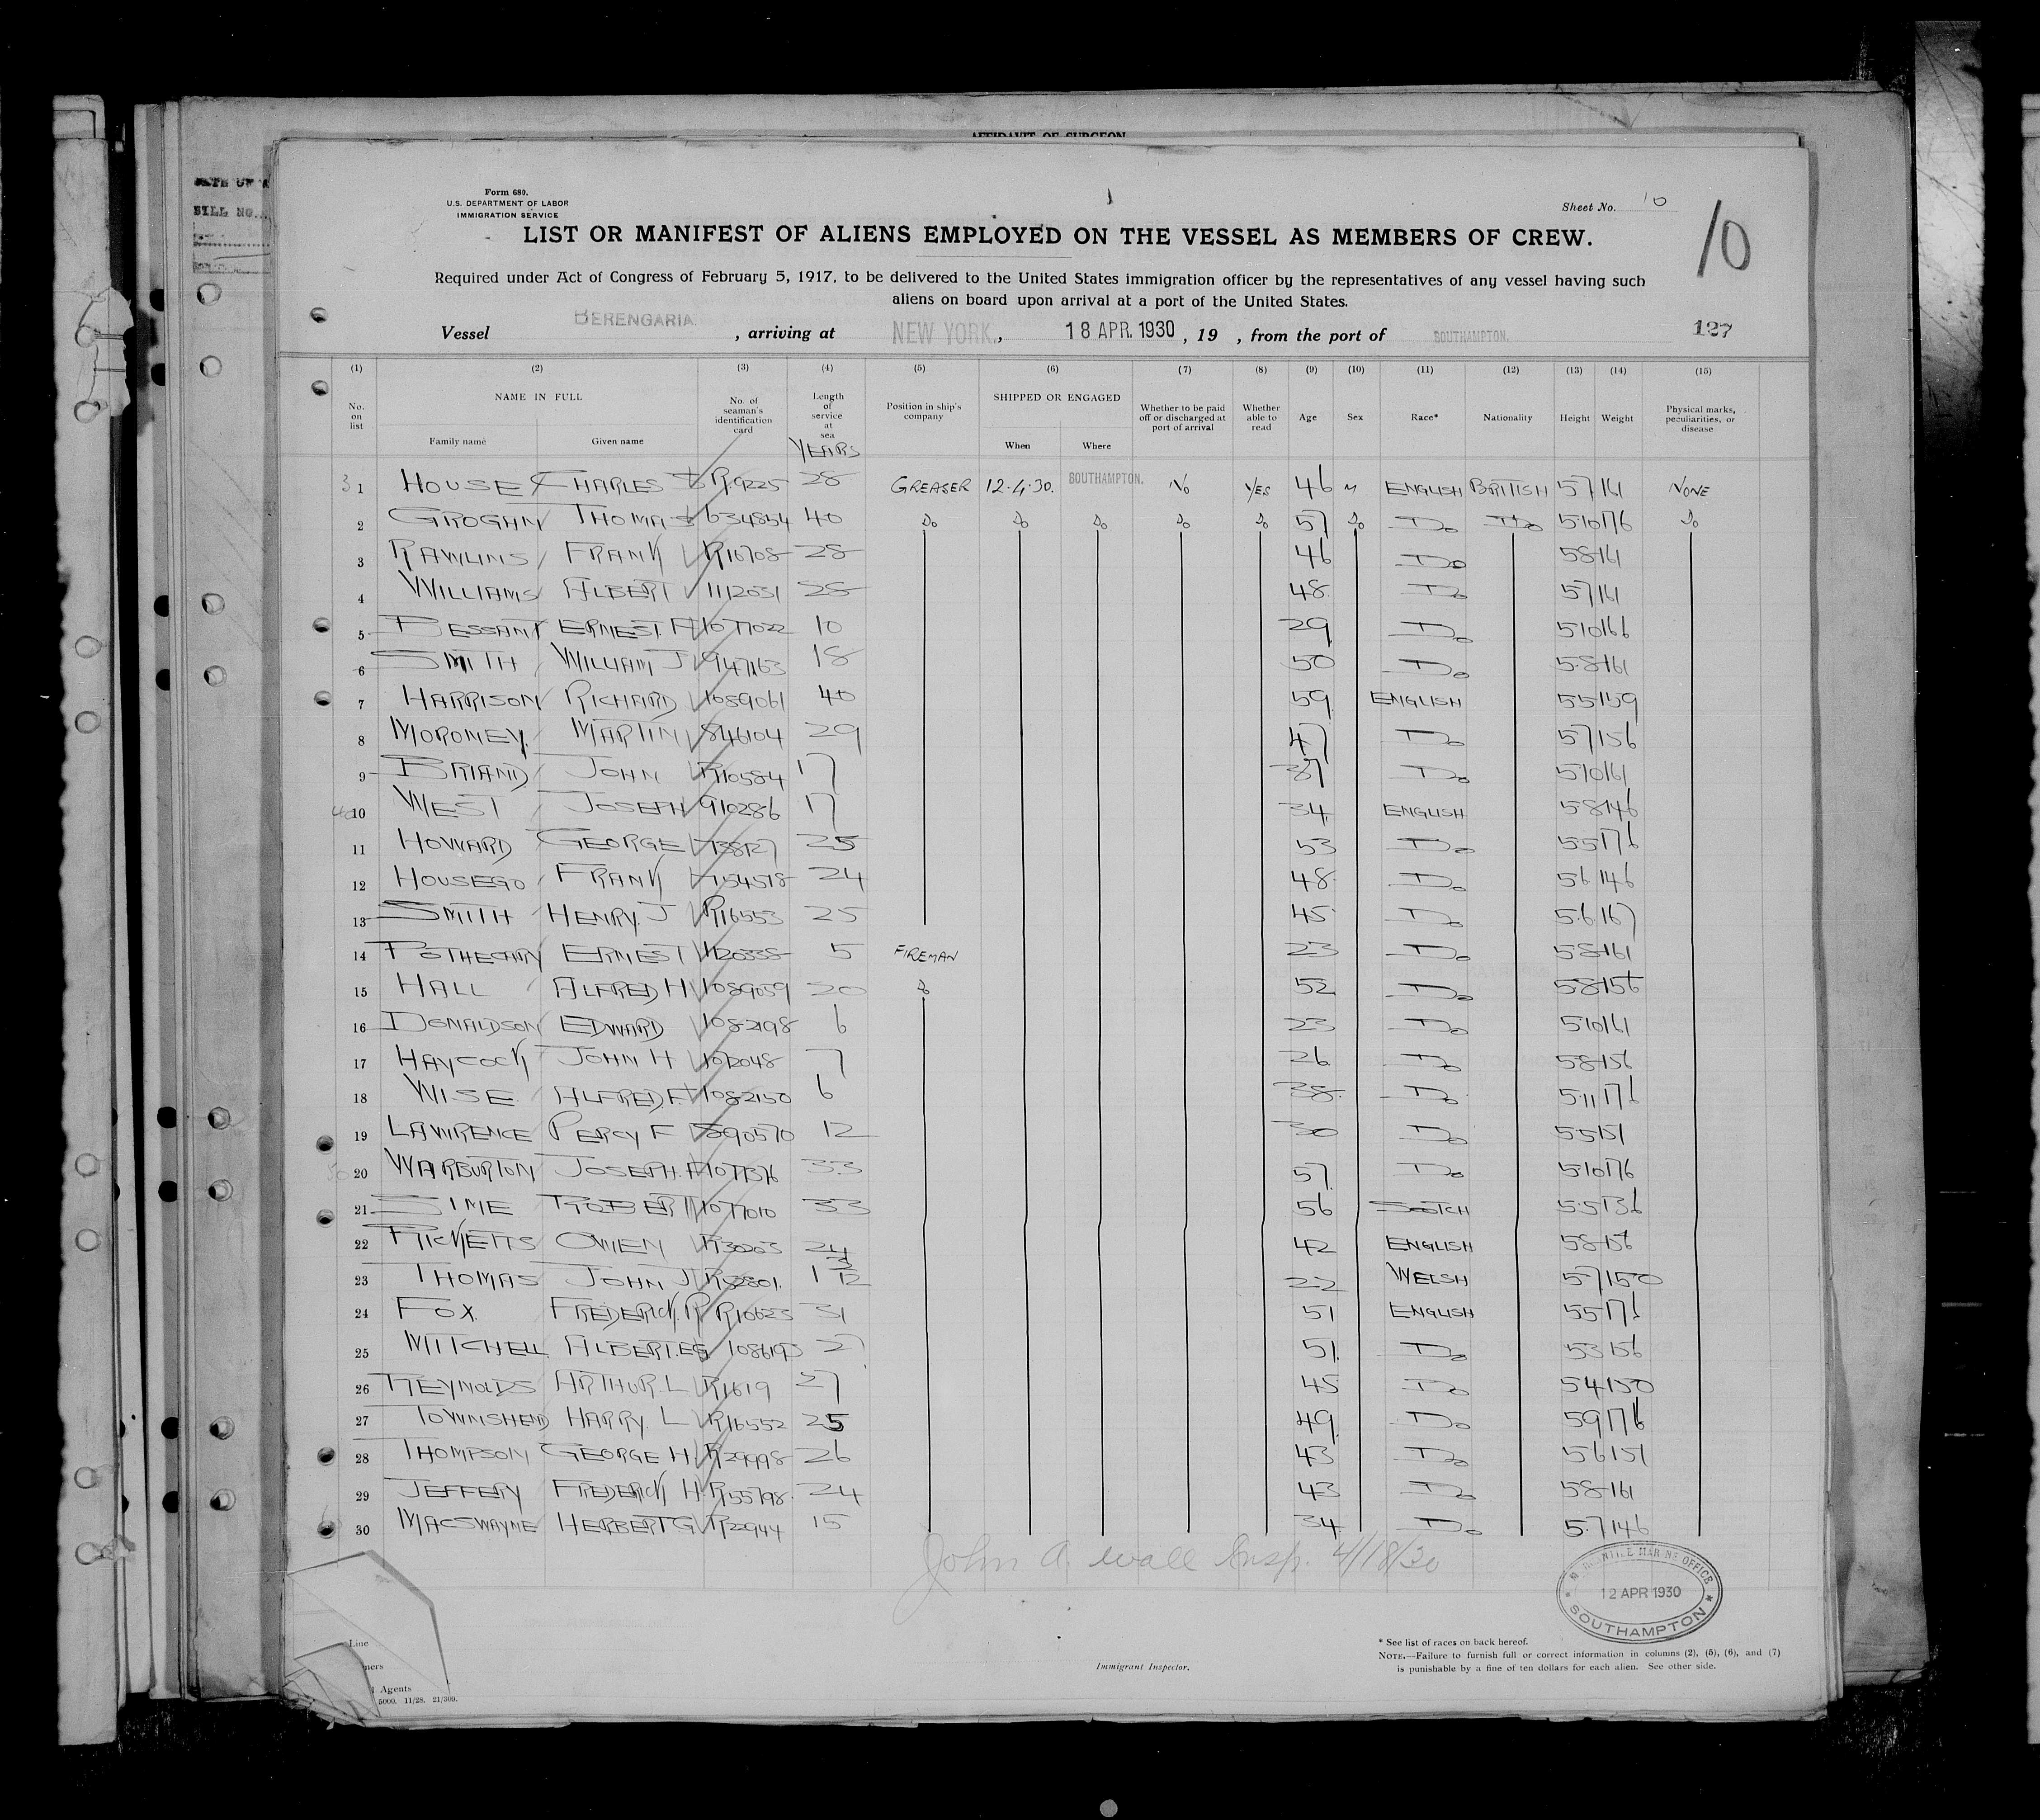 AFFIDAVIT OF SURGEON
Form 680.
U.S. DEPARTMENT OF LABOR
IMMIGRATION SERVICE
Sheet No. 10
10
LIST OR MANIFEST OF ALIENS EMPLOYED ON THE VESSEL AS MEMBERS OF CREW.
Required under Act of Congress of February 5, 1917, to be delivered to the United States immigration officer by the representatives of any vessel having such
aliens on board upon arrival at a port of the United States.
Vessel BERENGARIA , arriving at NEW YORK, 18 APR. 1930 , 19 , from the port of SOUTHAMPTON. 127
(1) (2) (3) (4) (5) (6) (7) (8) (9) (10) (11) (12) (13) (14) (15)
No. on list NAME IN FULL Family name Given name No. of seaman's identification card Length of service at sea YEARS Position in ship's company SHIPPED OR ENGAGED When Where Whether to be paid off or discharged at port of arrival Whether able to read Age Sex Race* Nationality Height Weight Physical marks, peculiarities, or disease
1 HOUSE CHARLES J R.9225 28 GREASER 12.4.30. SOUTHAMPTON. NO YES 46 M ENGLISH BRITISH 57 161 NONE
2 GROGAN THOMAS 634854 40 Do Do Do Do Do 57 Do Do Do 510 176 Do
3 RAWLINS FRANK R16708 28 46 Do 58 161
4 WILLIAMS ALBERT 1112031 28 48 Do 57 161
5 BESSANT ERNEST. A 1077022 10 29 Do 510 166
6 SMITH WILLIAM J 947163 18 50 Do 5.8 161
7 HARRISON RICHARD 1089061 40 59 ENGLISH 55 159
8 MORONEY. MARTIN 846104 29 47 Do 57 156
9 BRIAND JOHN R10584 17 37 Do 510 161
10 WEST JOSEPH 910286 17 34 ENGLISH 58 146
11 HOWARD GEORGE 738127 25 53 Do 55 176
12 HOUSEGO FRANK 754518 24 48 Do 56 146
13 SMITH HENRY. J R16553 25 45 Do 5.6 167
14 POTHECARY ERNEST 1120338 5 FIREMAN 23 Do 58 161
15 HALL ALFRED H 1089059 20 Do 52 Do 58 156
16 DONALDSON EDWARD 1082198 6 23 Do 510 161
17 HAYCOCK JOHN H 1072048 7 26 Do 58 156
18 WISE ALFRED. F. 1082150 6 38 Do 5.11 176
19 LAWRENCE PERCY F 890570 12 30 Do 55 151
20 WARBURTON JOSEPH. A 1077376 33 57 Do 510 176
21 SIME ROBERT 1077010 33 56 SCOTCH 5.5 136
22 RICKETTS OWEN R30263 24 42 ENGLISH 58 156
23 THOMAS JOHN J 1 3/12 22 WELSH 57 150
24 FOX. FREDERICK. R R10623 31 51 ENGLISH 55 171
25 MITCHELL ALBERT. EG 1086193 27 51 Do 53 156
26 REYNOLDS ARTHUR. L R1619 27 45 Do 54 150
27 TOWNSHEND HARRY. L R16552 25 49 Do 59 176
28 THOMPSON GEORGE H R29998 26 43 Do 56 151
29 JEFFERY FREDERICK H R55798 24 43 Do 58 161
30 MACSWAYNE HERBERT G R2944 15 34 Do 5.7 146
John A. Wall Insp. 4/18/30
MERCANTILE MARINE OFFICE
12 APR 1930
SOUTHAMPTON
Line
Agents
5000. 11/28. 21/309.
Immigrant Inspector.
* See list of races on back hereof.
NOTE.—Failure to furnish full or correct information in columns (2), (5), (6), and (7)
is punishable by a fine of ten dollars for each alien. See other side.